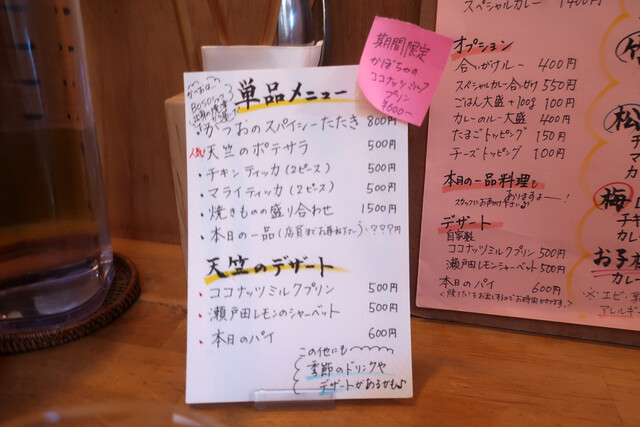 単品メニュー
・かつおのスパイシーたたき 800円
人気! 天竺のポテサラ 500円
・チキンティッカ(2ピース) 500円
・マライティッカ(2ピース) 500円
・焼きものの盛り合わせ 1500円
・本日の一品(店員までお尋ね下さい)・????円
天竺のデザート
・ココナッツミルクプリン 500円
・瀬戸田レモンのシャーベット 500円
・本日のパイ 600円
この他にも
季節のドリンクや
デザートがあるかも♪
期間限定
かぼちゃの
ココナッツミルク
プリン
¥600-
スペシャルカレー 1400円
オプション
合いがけルー 400円
スペシャルカレー合がけ 550円
ごはん大盛+100g 100円
カレーのルー大盛 400円
たまごトッピング 150円
チーズトッピング 100円
本日の一品料理も
ありますよー!
デザート
自家製
ココナッツミルクプリン 500円
瀬戸田レモンシャーベット 500円
本日のパイ 600円
竹
松
チキ
マ
カレ
梅
チキ
カレ
お子
カレー
※エビ・
アレルギー